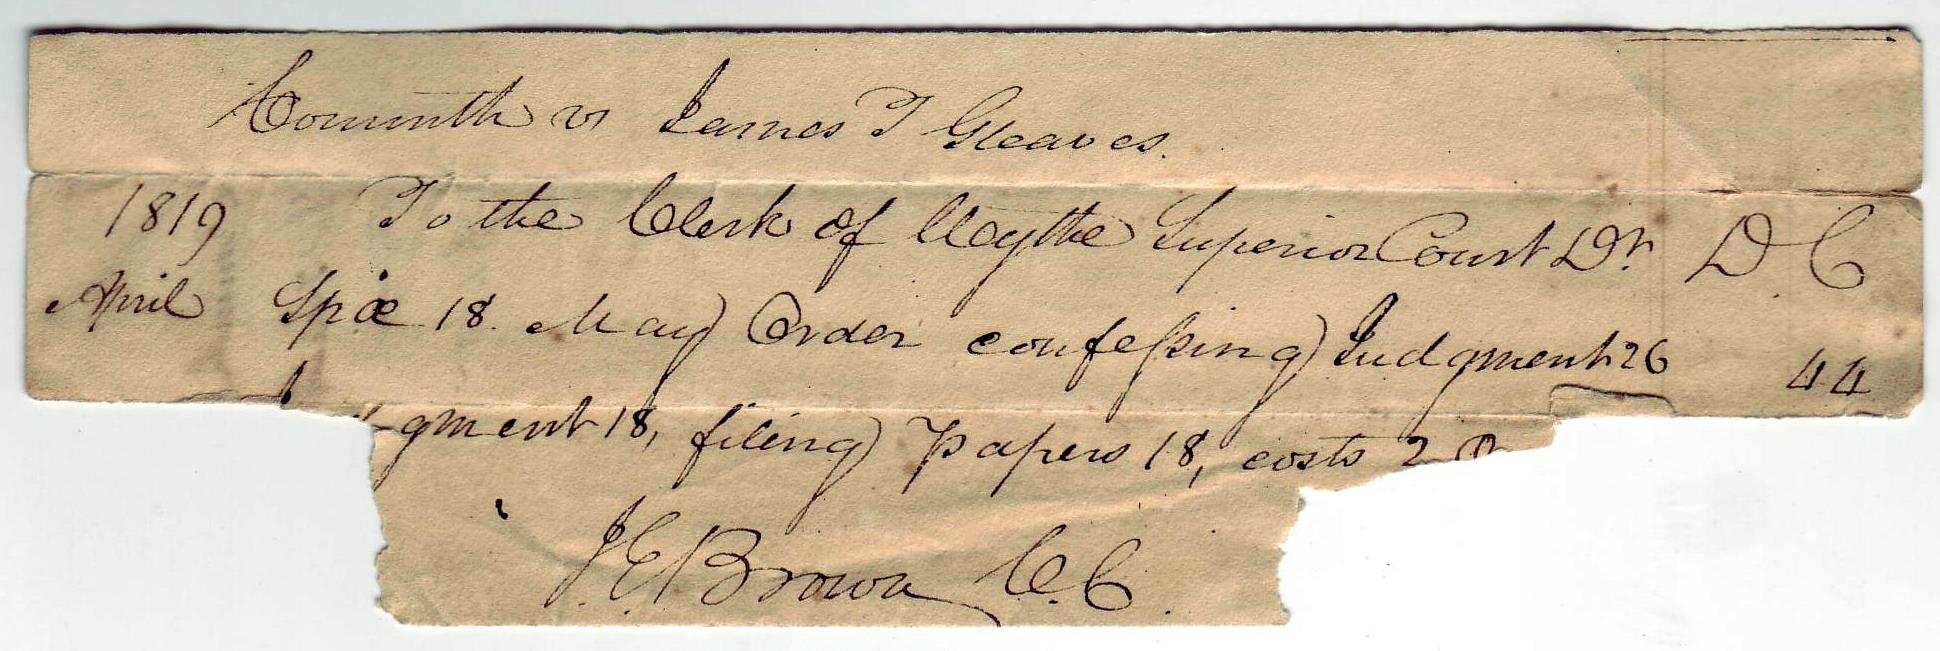 Commth vs James T Gleaves.
1819 To the Clerk of Wythe Superior Court Dr. D. C
April Spæ 18. May Order confessing Judgment 26 44
gment 18, filing Papers 18, costs 2
J. E. Brown C. C.